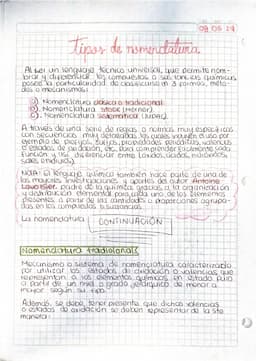 09 05 19
tipos de nomenclatura
Al ser un lenguaje técnico universal, que permite nom-
brar y diferenciar los compuestos o sustancias químicas
posee la particularidad de clasificarse en 3 formas, méto-
dos o mecanismos:
Nomenclatura clásica o tradicional.
Nomenclatura stock (Werner).
Nomenclatura sistemática (IUPAC).
A través de una serie de reglas o normas muy específicas
con secuencias, muy detalladas, los cuales incluyen el uso por
ejemplo de prefijos, sufijos, propiedades periódicas, valencias
o estados de oxidación, etc, para comprender fácilmente su
función y así diferenciar entre óxidos, ácidos, hidróxidos,
sales, anhídridos).
NOTA: El lenguaje químico también hace parte de una de
las mayores investigaciones y aportes del autor Antoine
Lavoisier, padre de la química, gracias a la organización
y distribución elemental para cada uno de los elementos
presentes a partir de las cantidades o proporciones agrupa-
das en los compuestos o sustancias.
La nomenclatura CONTINUACIÓN
Nomenclatura tradicional:
Mecanismo o sistema de nomenclatura caracterizado
por utilizar los estados de oxidación o valencias que
representan a los elementos químicos en estado puro
a partir de un nivel o grado jerárquico de menor a
mayor según su tipo.
Además, se debe tener presente que dichas valencias
o estados de oxidación se deben representar de la ste
manera: